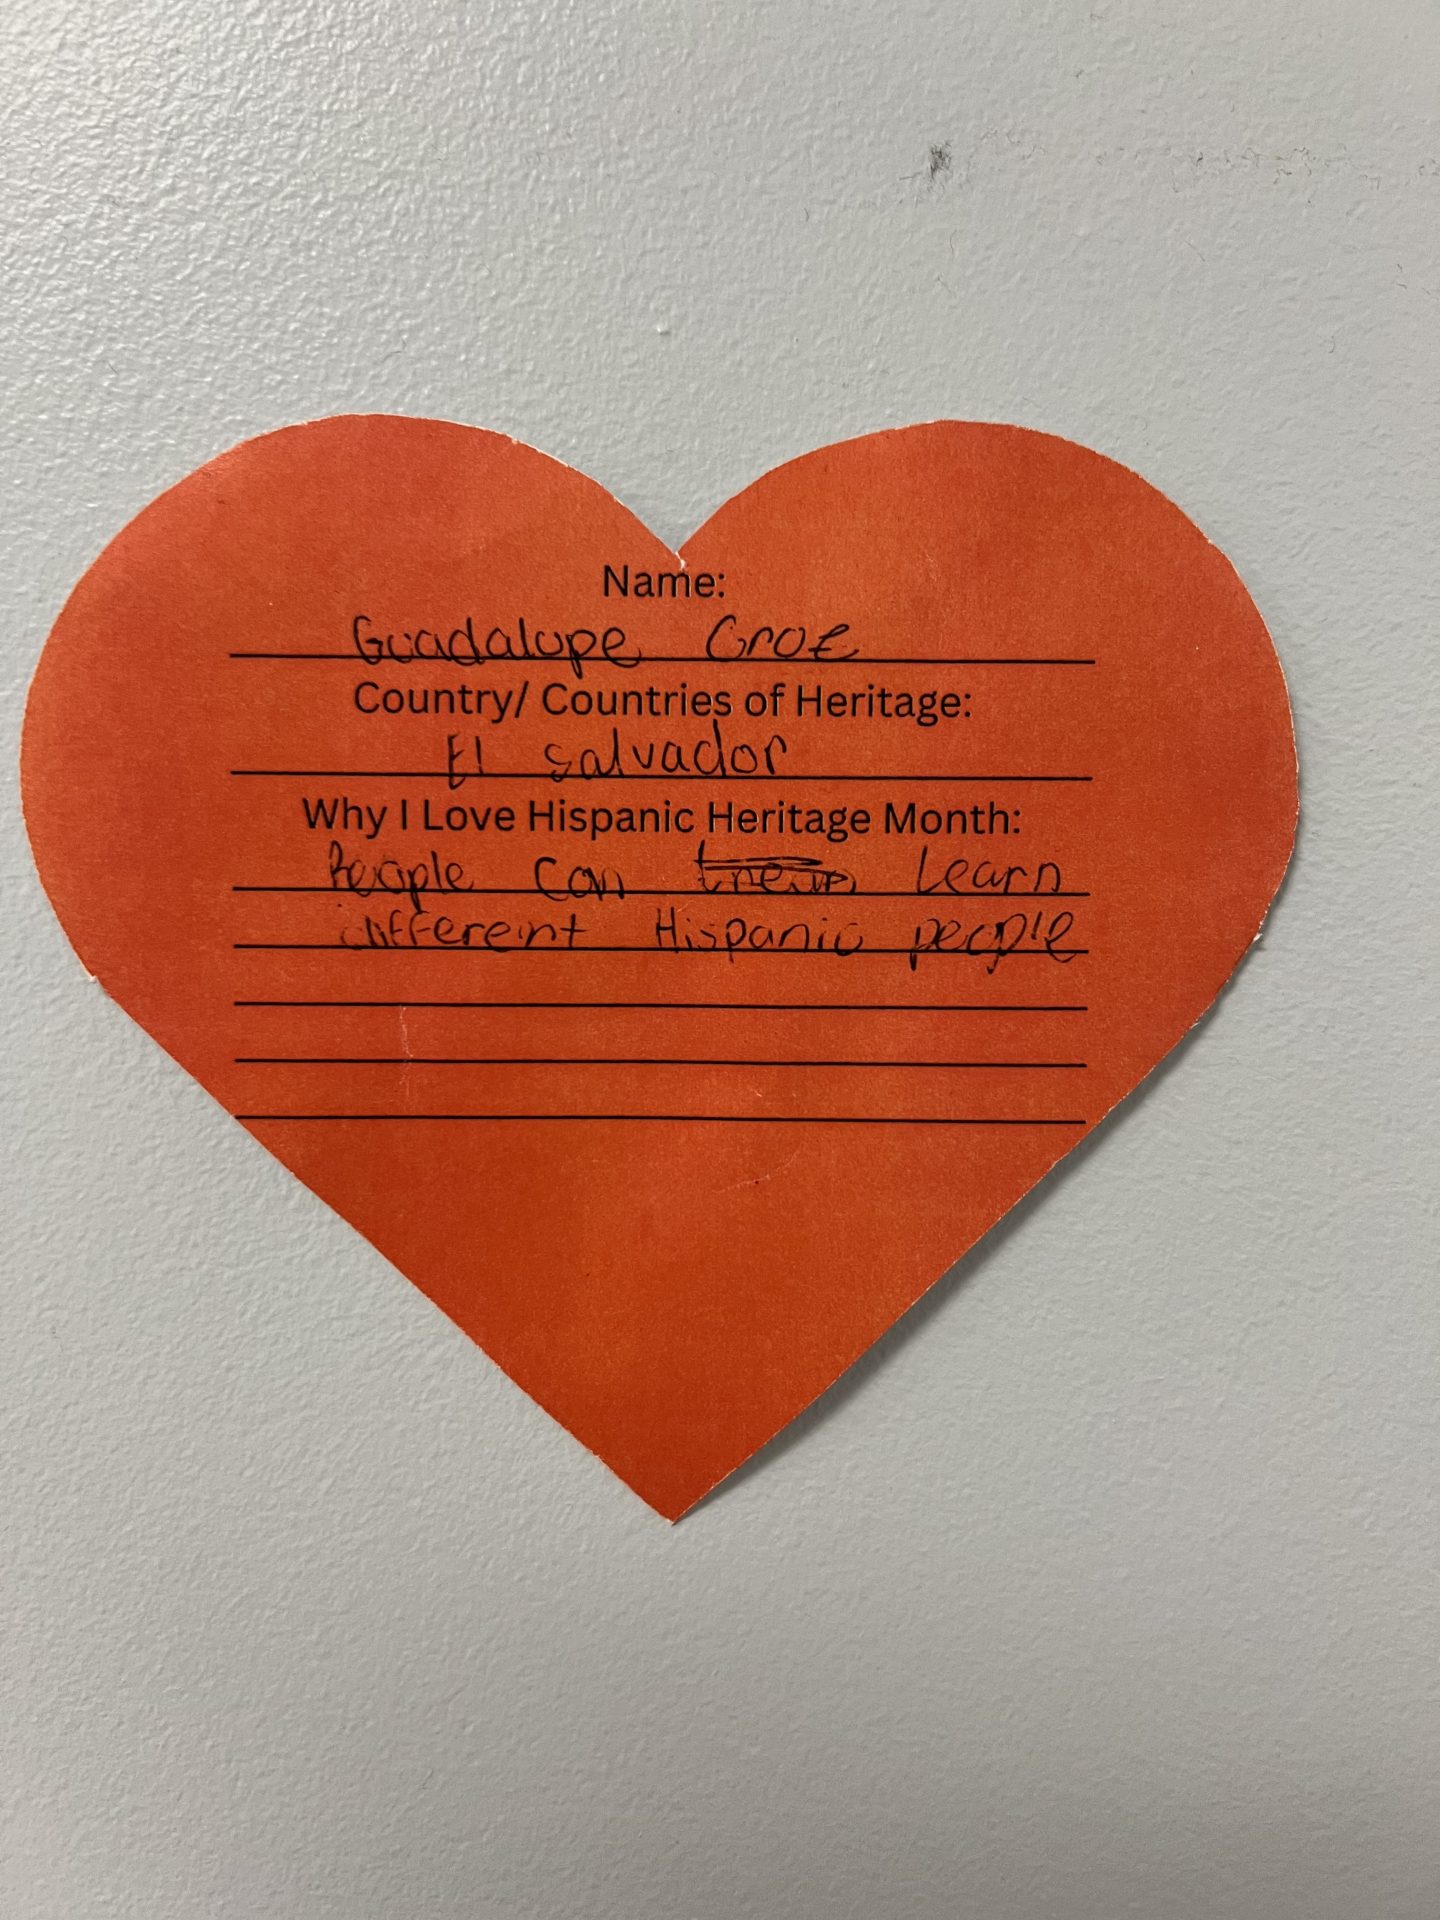 Name:
Guadalupe
Country/ Countries of Heritage:
El Salvador
Why I Love Hispanic Heritage Month:
People can Learn
different Hispanic people